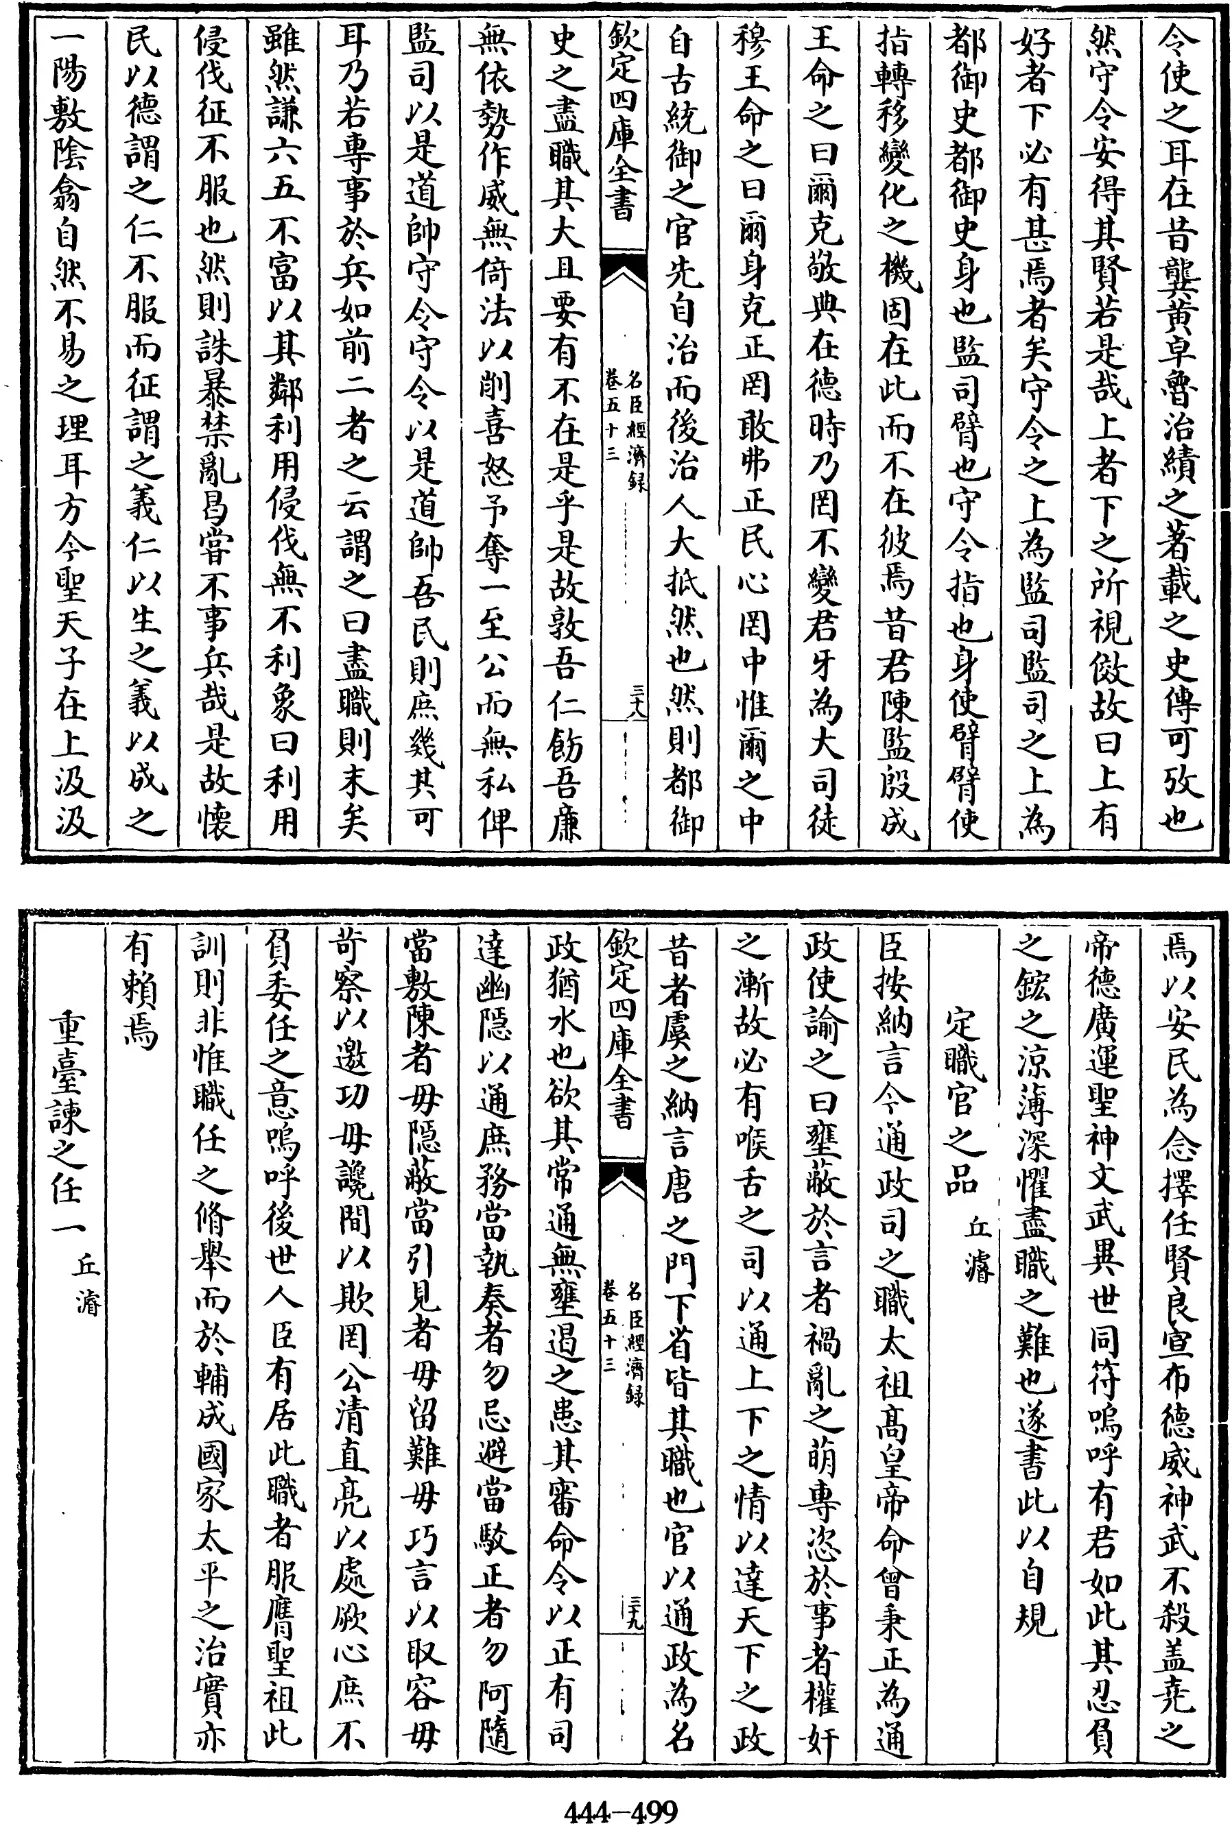 令使之耳在昔龔黄卓魯治績之著載之史傳可攷也
然守令安得其賢若是哉上者下之所視傚故曰上有
好者下必有甚焉者矣守令之上為監司監司之上為
都御史都御史身也監司臂也守令指也身使臂臂使
指轉移變化之機固在此而不在彼焉昔君陳監殷成
王命之曰爾克敬典在德時乃罔不變君牙為大司徒
穆王命之曰爾身克正罔敢弗正民心罔中惟爾之中
自古統御之官先自治而後治人大抵然也然則都御
欽定四庫全書
名臣經濟録
卷五十三
三十八
史之盡職其大且要有不在是乎是故敦吾仁飭吾廉
無依勢作威無倚法以削喜怒予奪一至公而無私俾
監司以是道帥守令守令以是道帥吾民則庶幾其可
耳乃若專事於兵如前二者之云謂之曰盡職則末矣
雖然謙六五不富以其鄰利用侵伐無不利象曰利用
侵伐征不服也然則誅暴禁亂曷嘗不事兵哉是故懷
民以德謂之仁不服而征謂之義仁以生之義以成之
一陽敷陰翕自然不易之理耳方今聖天子在上汲汲
焉以安民為念擇任賢良宣布德威神武不殺盖堯之
帝德廣運聖神文武異世同符嗚呼有君如此其忍負
之鋐之涼薄深懼盡職之難也遂書此以自規
定職官之品 丘濬
臣按納言今通政司之職太祖髙皇帝命曾秉正為通
政使諭之曰壅蔽於言者禍亂之萌專恣於事者權奸
之漸故必有喉舌之司以通上下之情以達天下之政
昔者虞之納言唐之門下省皆其職也官以通政為名
欽定四庫全書
名臣經濟録
卷五十三
三十九
政猶水也欲其常通無壅遏之患其審命令以正有司
達幽隠以通庶務當執奏者勿忌避當駁正者勿阿隨
當敷陳者毋隠蔽當引見者毋留難毋巧言以取容毋
苛察以邀功毋讒間以欺罔公清直亮以處厥心庶不
負委任之意嗚呼後世人臣有居此職者服膺聖祖此
訓則非惟職任之脩舉而於輔成國家太平之治實亦
有賴焉
重臺諫之任一 丘濬
444—499